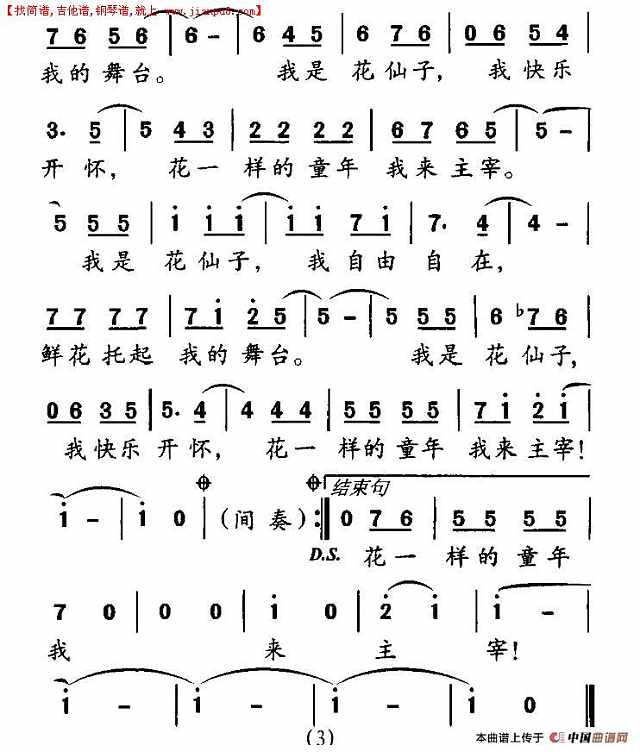 【找简谱,吉他谱,钢琴谱,就上 www.jianpu8.com】
7 6 5 6 | 6 - | 6 4 5 | 6 7 6 | 0 6 5 4
我的舞台。 我是 花仙子, 我快乐
3. 5 | 5 4 3 | 2 2 2 2 | 6 7 6 5 | 5 -
开怀, 花一样的童年 我来主宰。
5 5 5 | i i i | i i 7 i | 7. 4 | 4 -
我是 花仙子, 我自由自在,
7 7 7 7 | 7 i 2 5 | 5 - | 5 5 5 | 6 ♭7 6
鲜花托起 我的舞台。 我是 花仙子,
0 6 3 5 | 5. 4 | 4 4 4 | 5 5 5 5 | 7 i 2 i
我快乐开怀, 花一样的童年 我来主宰!
结束句
i - | i 0 | (间奏) :‖ 0 7 6 | 5 5 5 5
D.S. 花一 样的童年
7 0 | 0 0 | i 0 | 2 i | i -
我 来 主 宰!
i - | i - | i - | i 0 ‖
(3)
本曲谱上传于 中国曲谱网